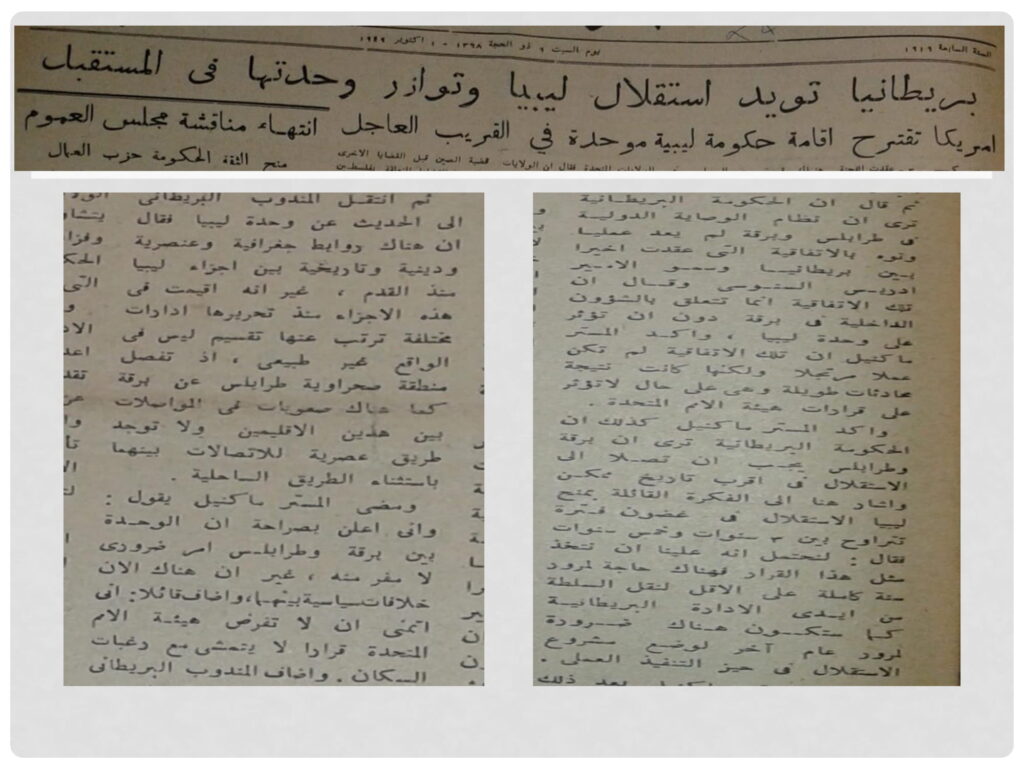 السنة السابعة ١٩١٦
يوم السبت ٩ ذو الحجة ١٣٦٨ - ١ اكتوبر ١٩٤٩
بريطانيا تويد استقلال ليبيا وتوازر وحدتها فى المستقبل
امريكا تقترح اقامة حكومة ليبية موحدة في القريب العاجل
انتهاء مناقشة مجلس العموم
منح الثقة لحكومة حزب العمال
قضية الصين قبل القضايا الاخرى
المتحدة فقال ان الولايات
ثم قال ان الحكومة البريطانية
ترى ان نظام الوصاية الدولية
فى طرابلس وبرقة لم يعد عمليا
ونوه بالاتفاقية التى عقدت اخيرا
بين بريطانيا وسمو الامير
ادريس السنوسى وقال ان
تلك الاتفاقية انما تتعلق بالشؤون
الداخلية فى برقة دون ان تؤثر
على وحدة ليبيا ، واكد المستر
ماكنيل ان تلك الاتفاقية لم تكن
عملا مرتجلا ولكنها كانت نتيجة
محادثات طويلة وهى على حال لاتؤثر
على قرارات هيئة الامم المتحدة .
واكد المستر ماكنيل كذلك ان
الحكومة البريطانية ترى ان برقة
وطرابلس يجب ان تصلا الى
الاستقلال فى اقرب تاريخ ممكن
واشار هنا الى الفكرة القائلة بمنح
ليبيا الاستقلال فى غضون فترة
تتراوح بين ٣ سنوات وخمس سنوات
فقال : لنحتمل انه علينا ان نتخذ
مثل هذا القرار فهناك حاجة لمرور
سنة كاملة على الاقل لنقل السلطة
من ايدى الادارة البريطانية
كما ستكون هناك ضرورة
لمرور عام آخر لوضع مشروع
الاستقلال فى حيز التنفيذ العملى .
بعد ذلك
ثم انتقل المندوب البريطانى
الى الحديث عن وحدة ليبيا فقال
ان هناك روابط جغرافية وعنصرية
ودينية وتاريخية بين اجزاء ليبيا
منذ القدم ، غير انه اقيمت فى
هذه الاجزاء منذ تحريرها ادارات
مختلفة ترتب عنها تقسيم ليس فى
الواقع غير طبيعى ، اذ تفصل
منطقة صحراوية طرابلس عن برقة
كما هناك صعوبات فى المواصلات
بين هذين الاقليمين ولا توجد
طريق عصرية للاتصالات بينهما
باستثناء الطريق الساحلية .
ومضى المستر ماكنيل يقول :
وانى اعلن بصراحة ان الوحدة
بين برقة وطرابلس امر ضرورى
لا مفر منه ، غير ان هناك الان
خلافات سياسية بينهما، واضاف قائلا: انى
اتمنى ان لا تفرض هيئة الامم
المتحدة قرارا لا يتمشى مع رغبات
السكان . واضاف المندوب البريطانى